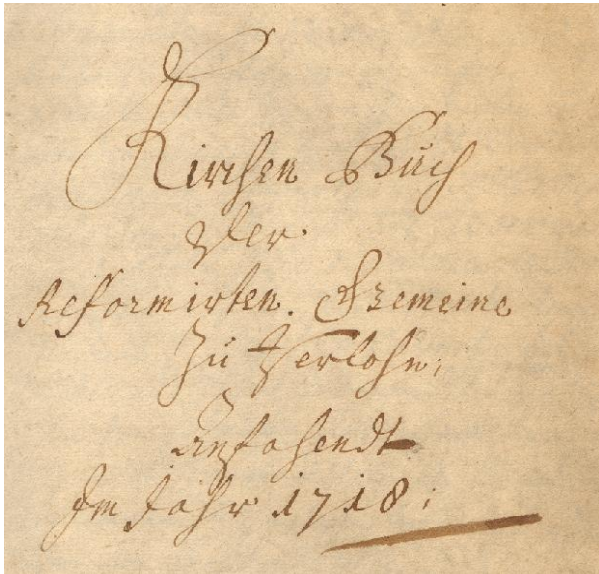 Kirchen Buch
Der
Reformirten. Gemeine
Zu Iserlohn,
Anfahendt
Im Jahr 1718.